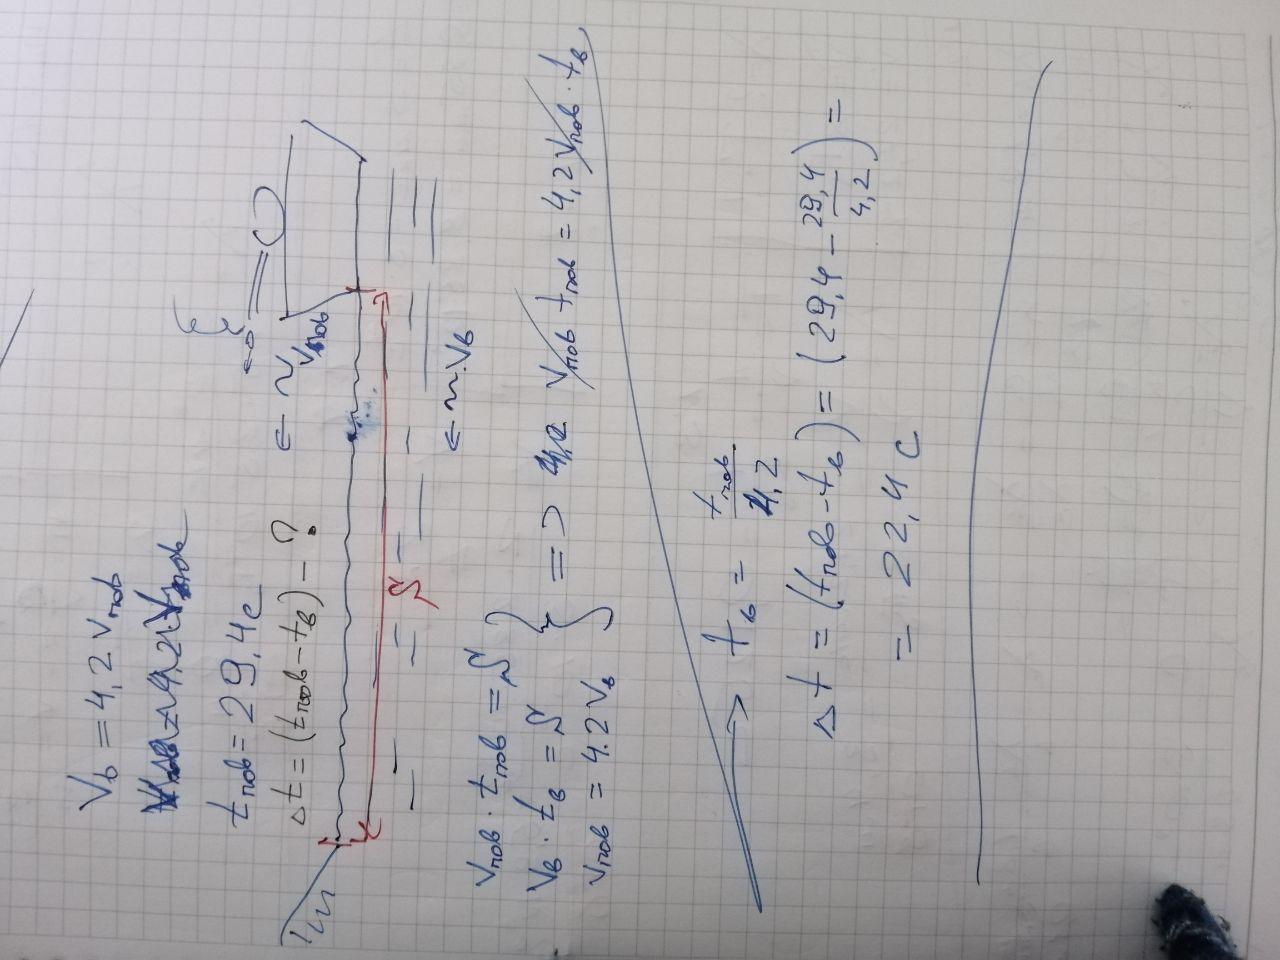 Vв = 4,2 Vпов
tпов = 29,4 с
Δt = (tпов - tв) - ?
~ Vпов
~ Vв
S
Vпов · tпов = S
Vв · tв = S
Vпов = 4.2 Vв
=> Vпов tпов = 4,2 Vпов · tв
tв = tпов / 4,2
Δt = (tпов - tв) = (29,4 - 29,4 / 4,2) =
= 22,4 с